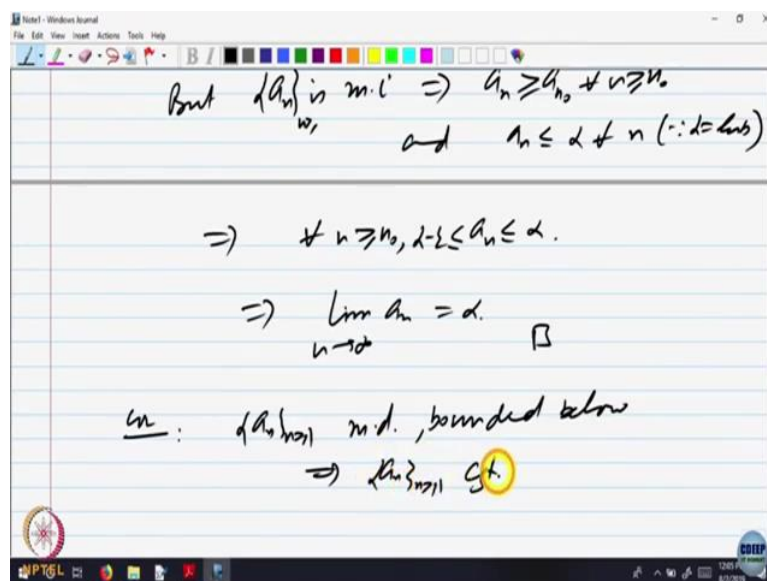 Note1 - Windows Journal
File Edit View Insert Actions Tools Help
But {aₙ} is m.i ⇒ aₙ ≥ aₙ₀ ∀ n ≥ n₀
and aₙ ≤ α ∀ n (∵ α = lub)
⇒ ∀ n ≥ n₀, α-ε ≤ aₙ ≤ α.
⇒ lim aₙ = α.
n→∞
{aₙ}ₙ≥₁ m.d., bounded below
⇒ {aₙ}ₙ≥₁ cgt.
NPTEL
CDEEP